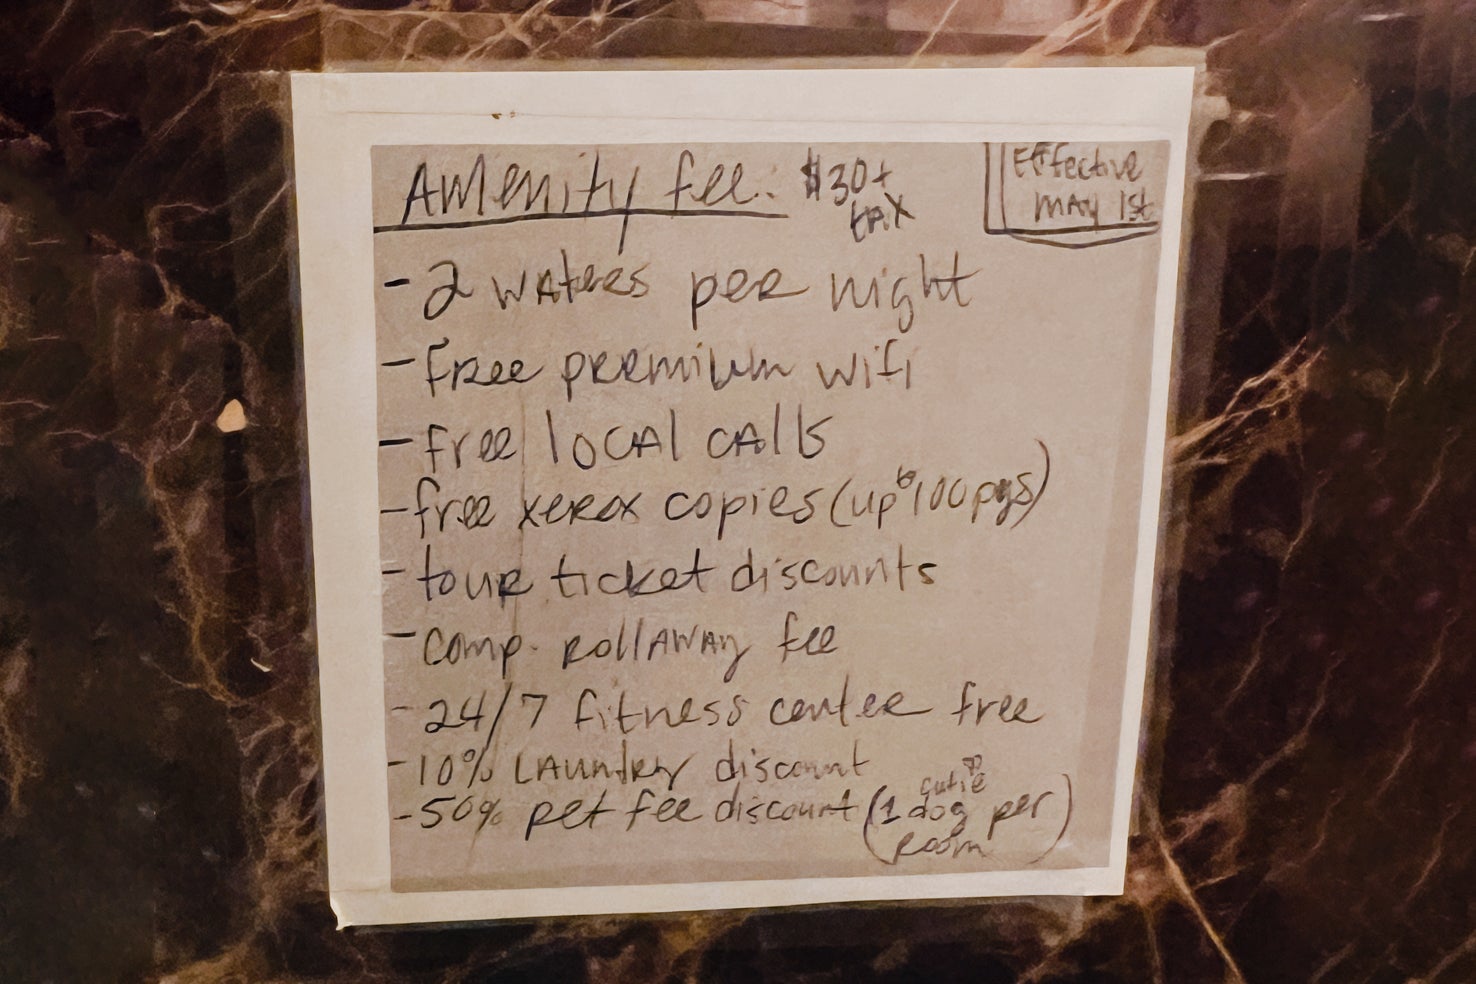 Amenity fee: $30+ tax
Effective May 1st
- 2 waters per night
- free premium wifi
- free local calls
- free xerox copies (up to 100 pgs)
- tour ticket discounts
- comp. rollaway fee
- 24/7 fitness center free
- 10% laundry discount
- 50% pet fee discount (1 cutie dog per room)